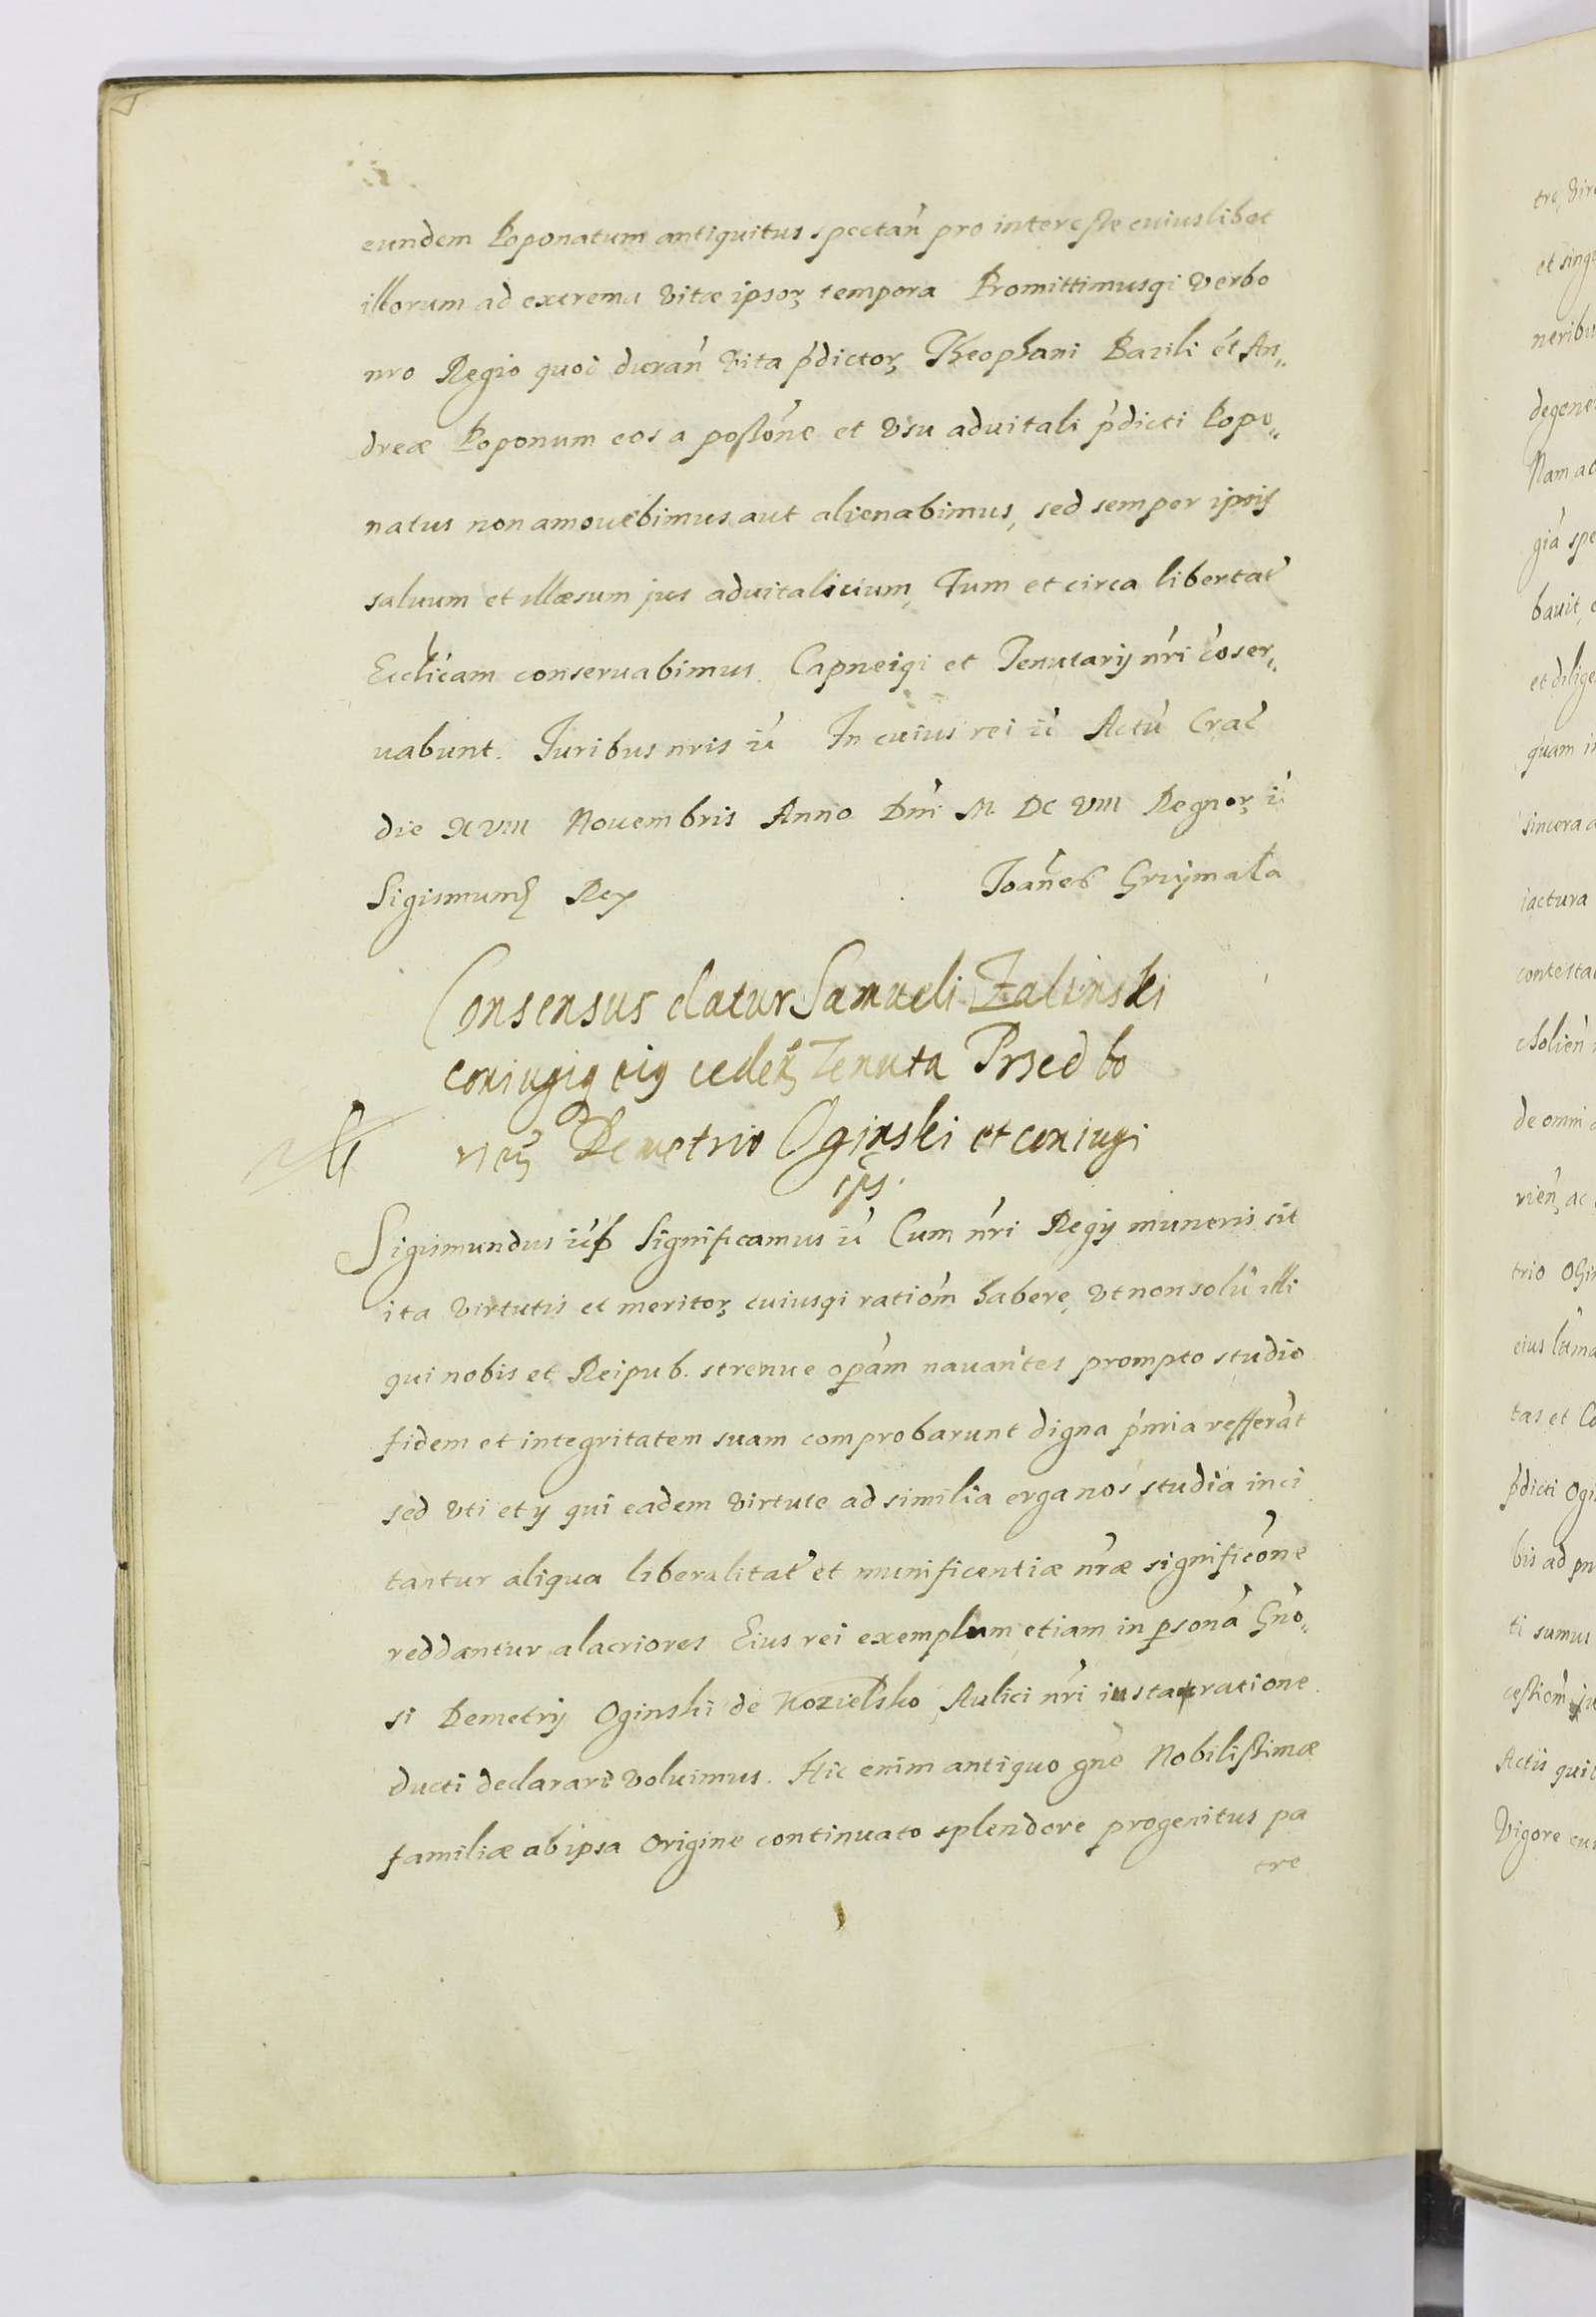 eundem Poponatum antiquitus spectan̄ pro interesse cuiuslibet
illorum ad extrema vitæ ipsoꝝ tempora Promittimusqꝫ verbo
nro Regio quod duran̄ vita p̄dictoꝝ Theophani Bazili et An„
dreæ Poponum eos a possōne et vsu aduitali p̄dicti Popo„
natus non amouebimus aut alienabimus, sed semper ipsis
saluum et illæsum jus aduitalicium, Tum et circa libertat̄
Eccl̄icam conseruabimus. Capneiqꝫ et Tenutarij nr̄i c̄oser„
uabunt. Juribus nris
In cuius rei
Actū Crac̄
die XVIII Nouembris Anno Dn̄i M. DC VIII Regnoꝝ
Sigismund9 Rex
Joan̄es Grzÿmała
Consensus datur Samueli Zalinski
coniugiqꝫ eiꝰ ceden̄ Tenuta Przedbo
rien̄ Demetrio Oginski et coniugi
ips.
Sigismundus Significamus Cum nr̄i Regij muneris sit
ita virtutis et meritoꝝ cuiusqꝫ ratiōm habere, vt non solū illi
qui nobis et Reipub. strenue op̄am nauantes prompto studio
fidem et integritatem suam comprobarunt digna p̄mia refferāt
sed vti et ij qui eadem virtute ad similia erga nos studia inci
tantur aliqua liberalitat̄ et munificentiæ nr̄æ significōne
reddantur alacriores Eius rei exemplum etiam in p̄sonā Gn̄o„
si Demetrij Oginski de Kozielsko Aulici nr̄i iusta ratione
ducti declarari voluimus. Hic enim antiquo gn̄e Nobilissimæ
familiæ ab ipsa origine continuato splendore progenitus pa
tre